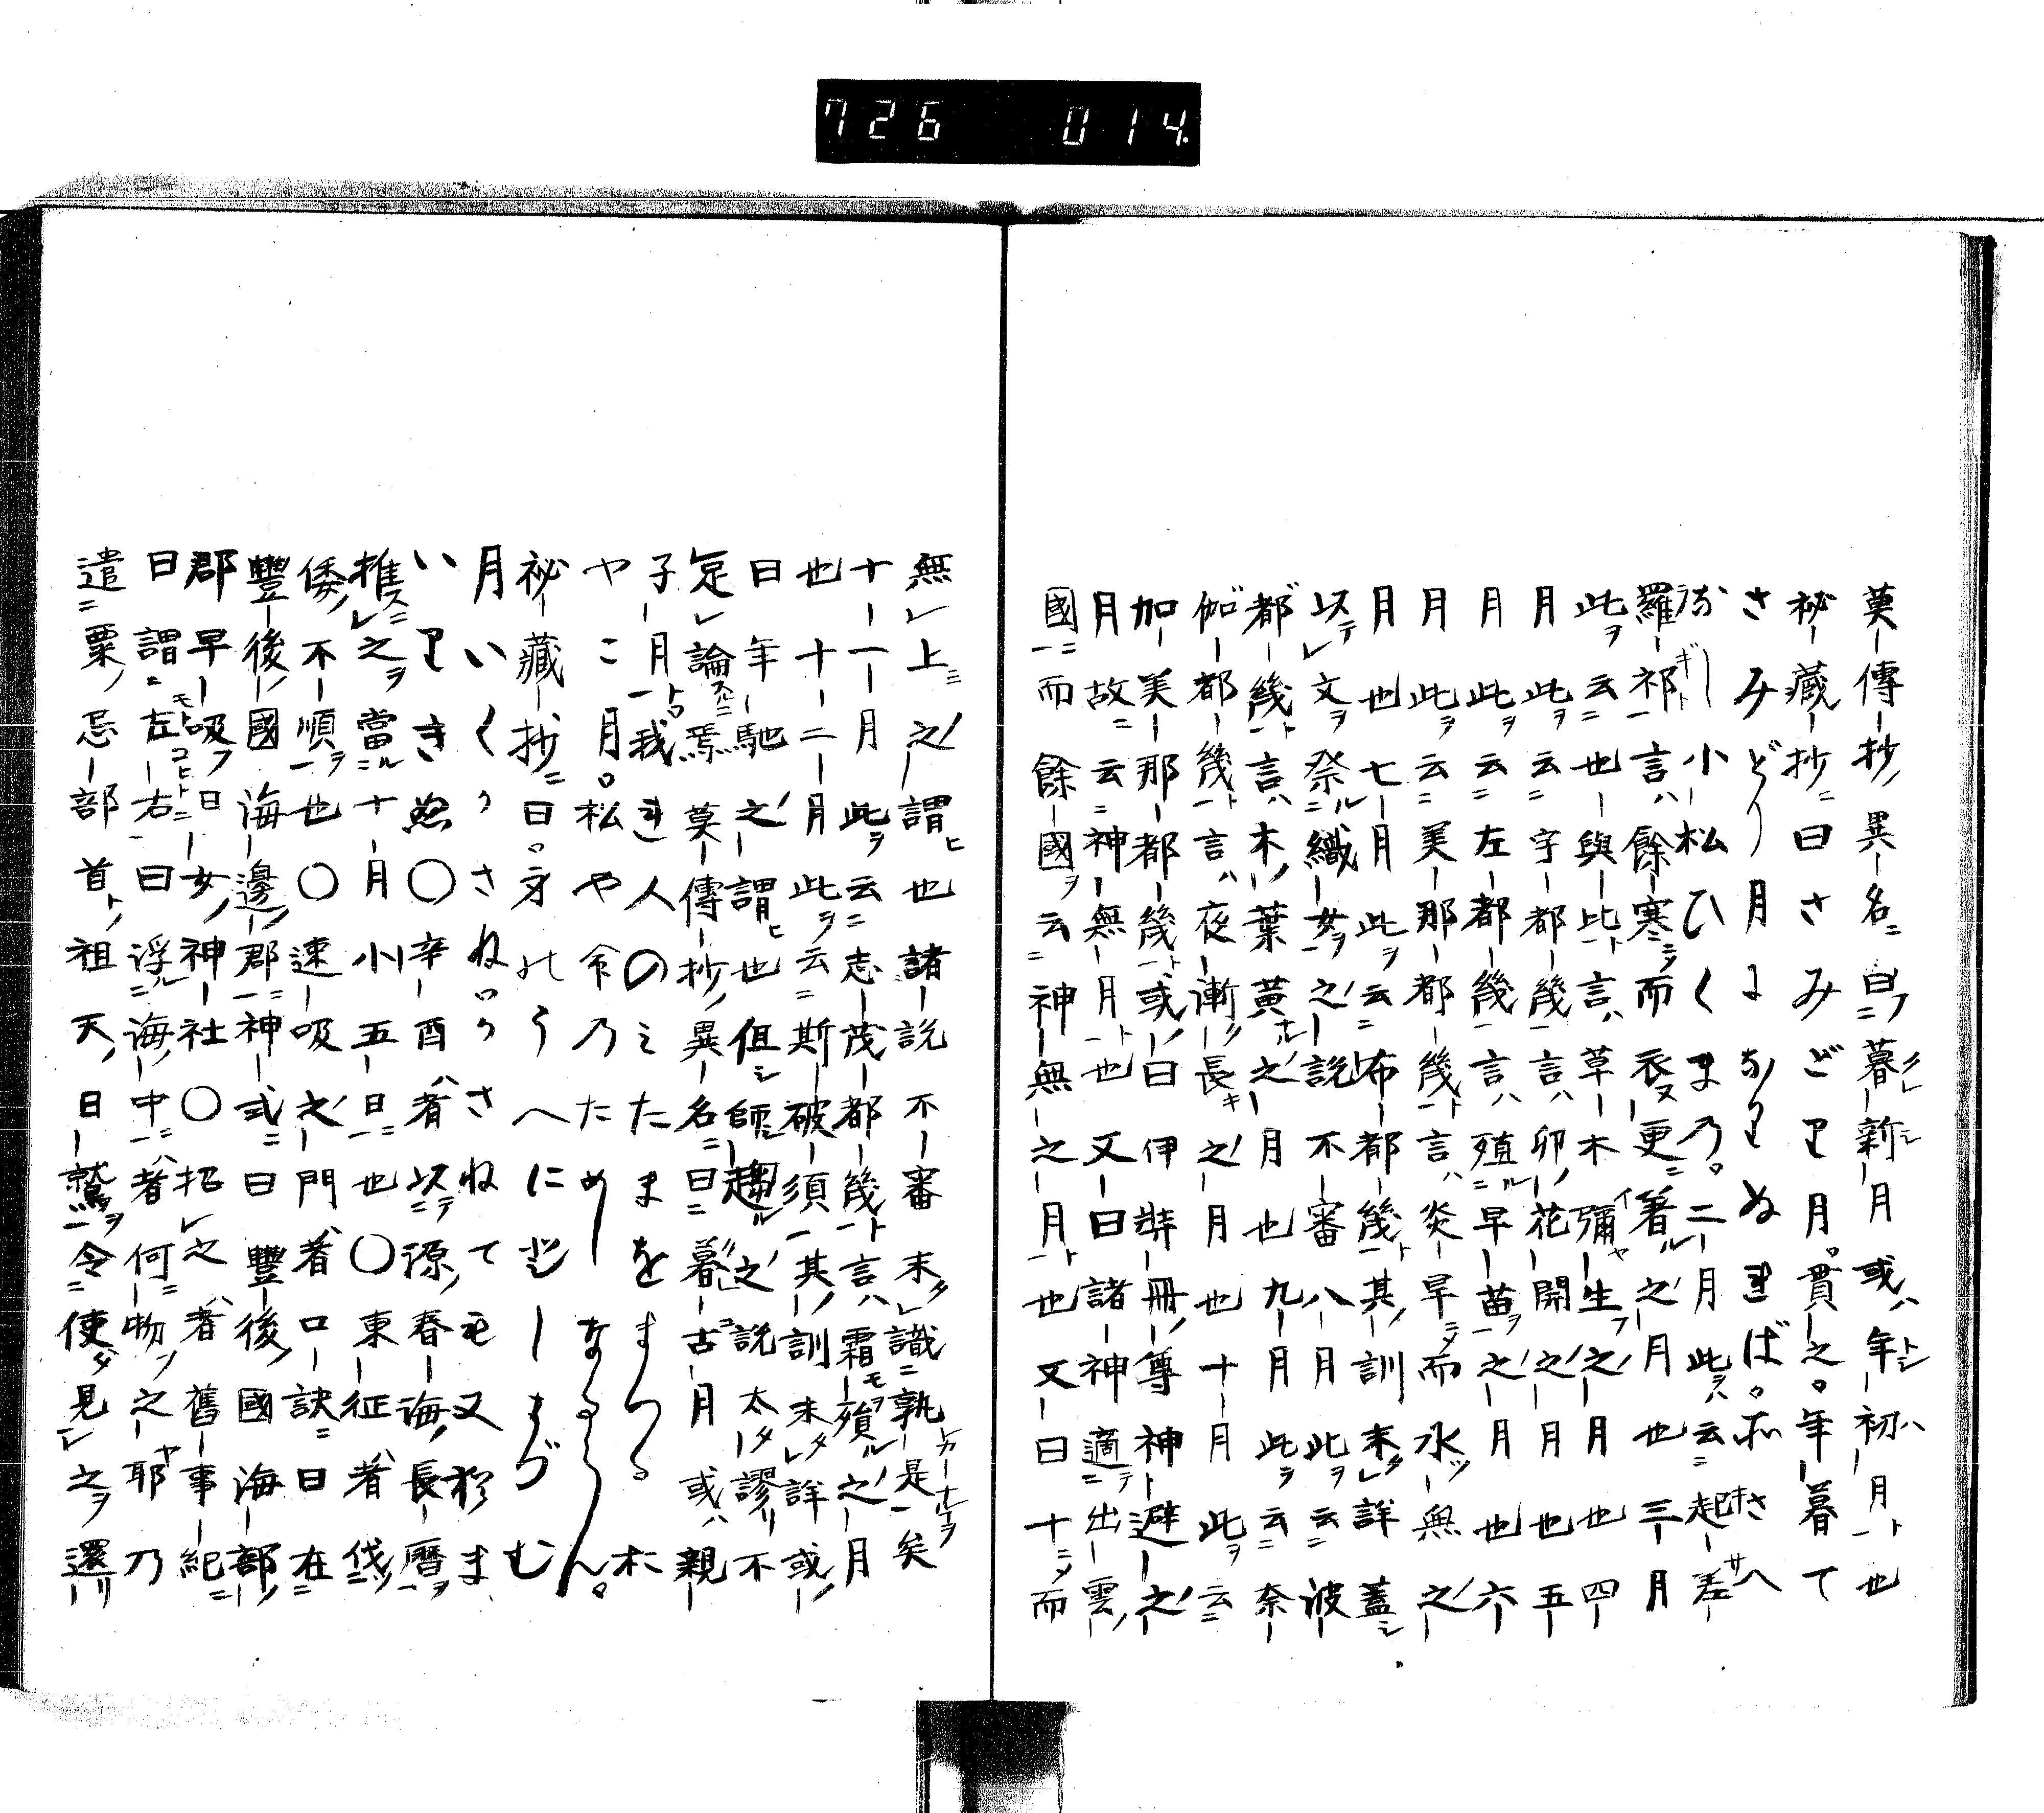 726 014
莫傳抄異名曰暮新月或年初月也
祕藏抄曰さみどり月。貫之。年暮て
さみどり月になりぬればおさへ
小松ひくまの。二月此云起差
羅祁言餘寒而衣更著之月也三月
此云也與比言草木彌生之月也四
月此云宇都幾言卯花開之月也五
月此云左都幾言殖早苗之月也六
月此云美那都幾言炎旱而水無之
月也七月此云布都幾其訓未詳蓋
以文祭織女之說不審八月此云波
都幾言木葉黃之月也九月此云奈
伽都幾言夜漸長之月也十月此云
加美那都幾或曰伊弉冊尊神避之
月故云神無月也又曰諸神適出雲
國而餘國云神無之月也又曰十而
無上之謂也諸說不審未識孰是矣
十一月此云志茂都幾言霜殞之月
也十二月此云斯破須其訓未詳或
曰年馳之謂也但師趨之說太謬不
足論焉莫傳抄異名曰暮古月或親
子月我れ人のみたまをまつるホ
やこ月。松や今乃ためしなるらん。
祕藏抄曰。身のうへにとしまづむ
月いくかさねかさねても又積ま
いりきぬ〇辛酉者以源春海長曆
推之當十月小五日也〇東征者伐
倭不順也〇速吸之門者口訣曰在
豐後國海邊郡神式曰豐後國海部
郡早吸日女神社〇招之者舊事紀
曰謂左右曰浮海中者何物之耶乃
遣粟忌部首祖天日鷲令使見之還